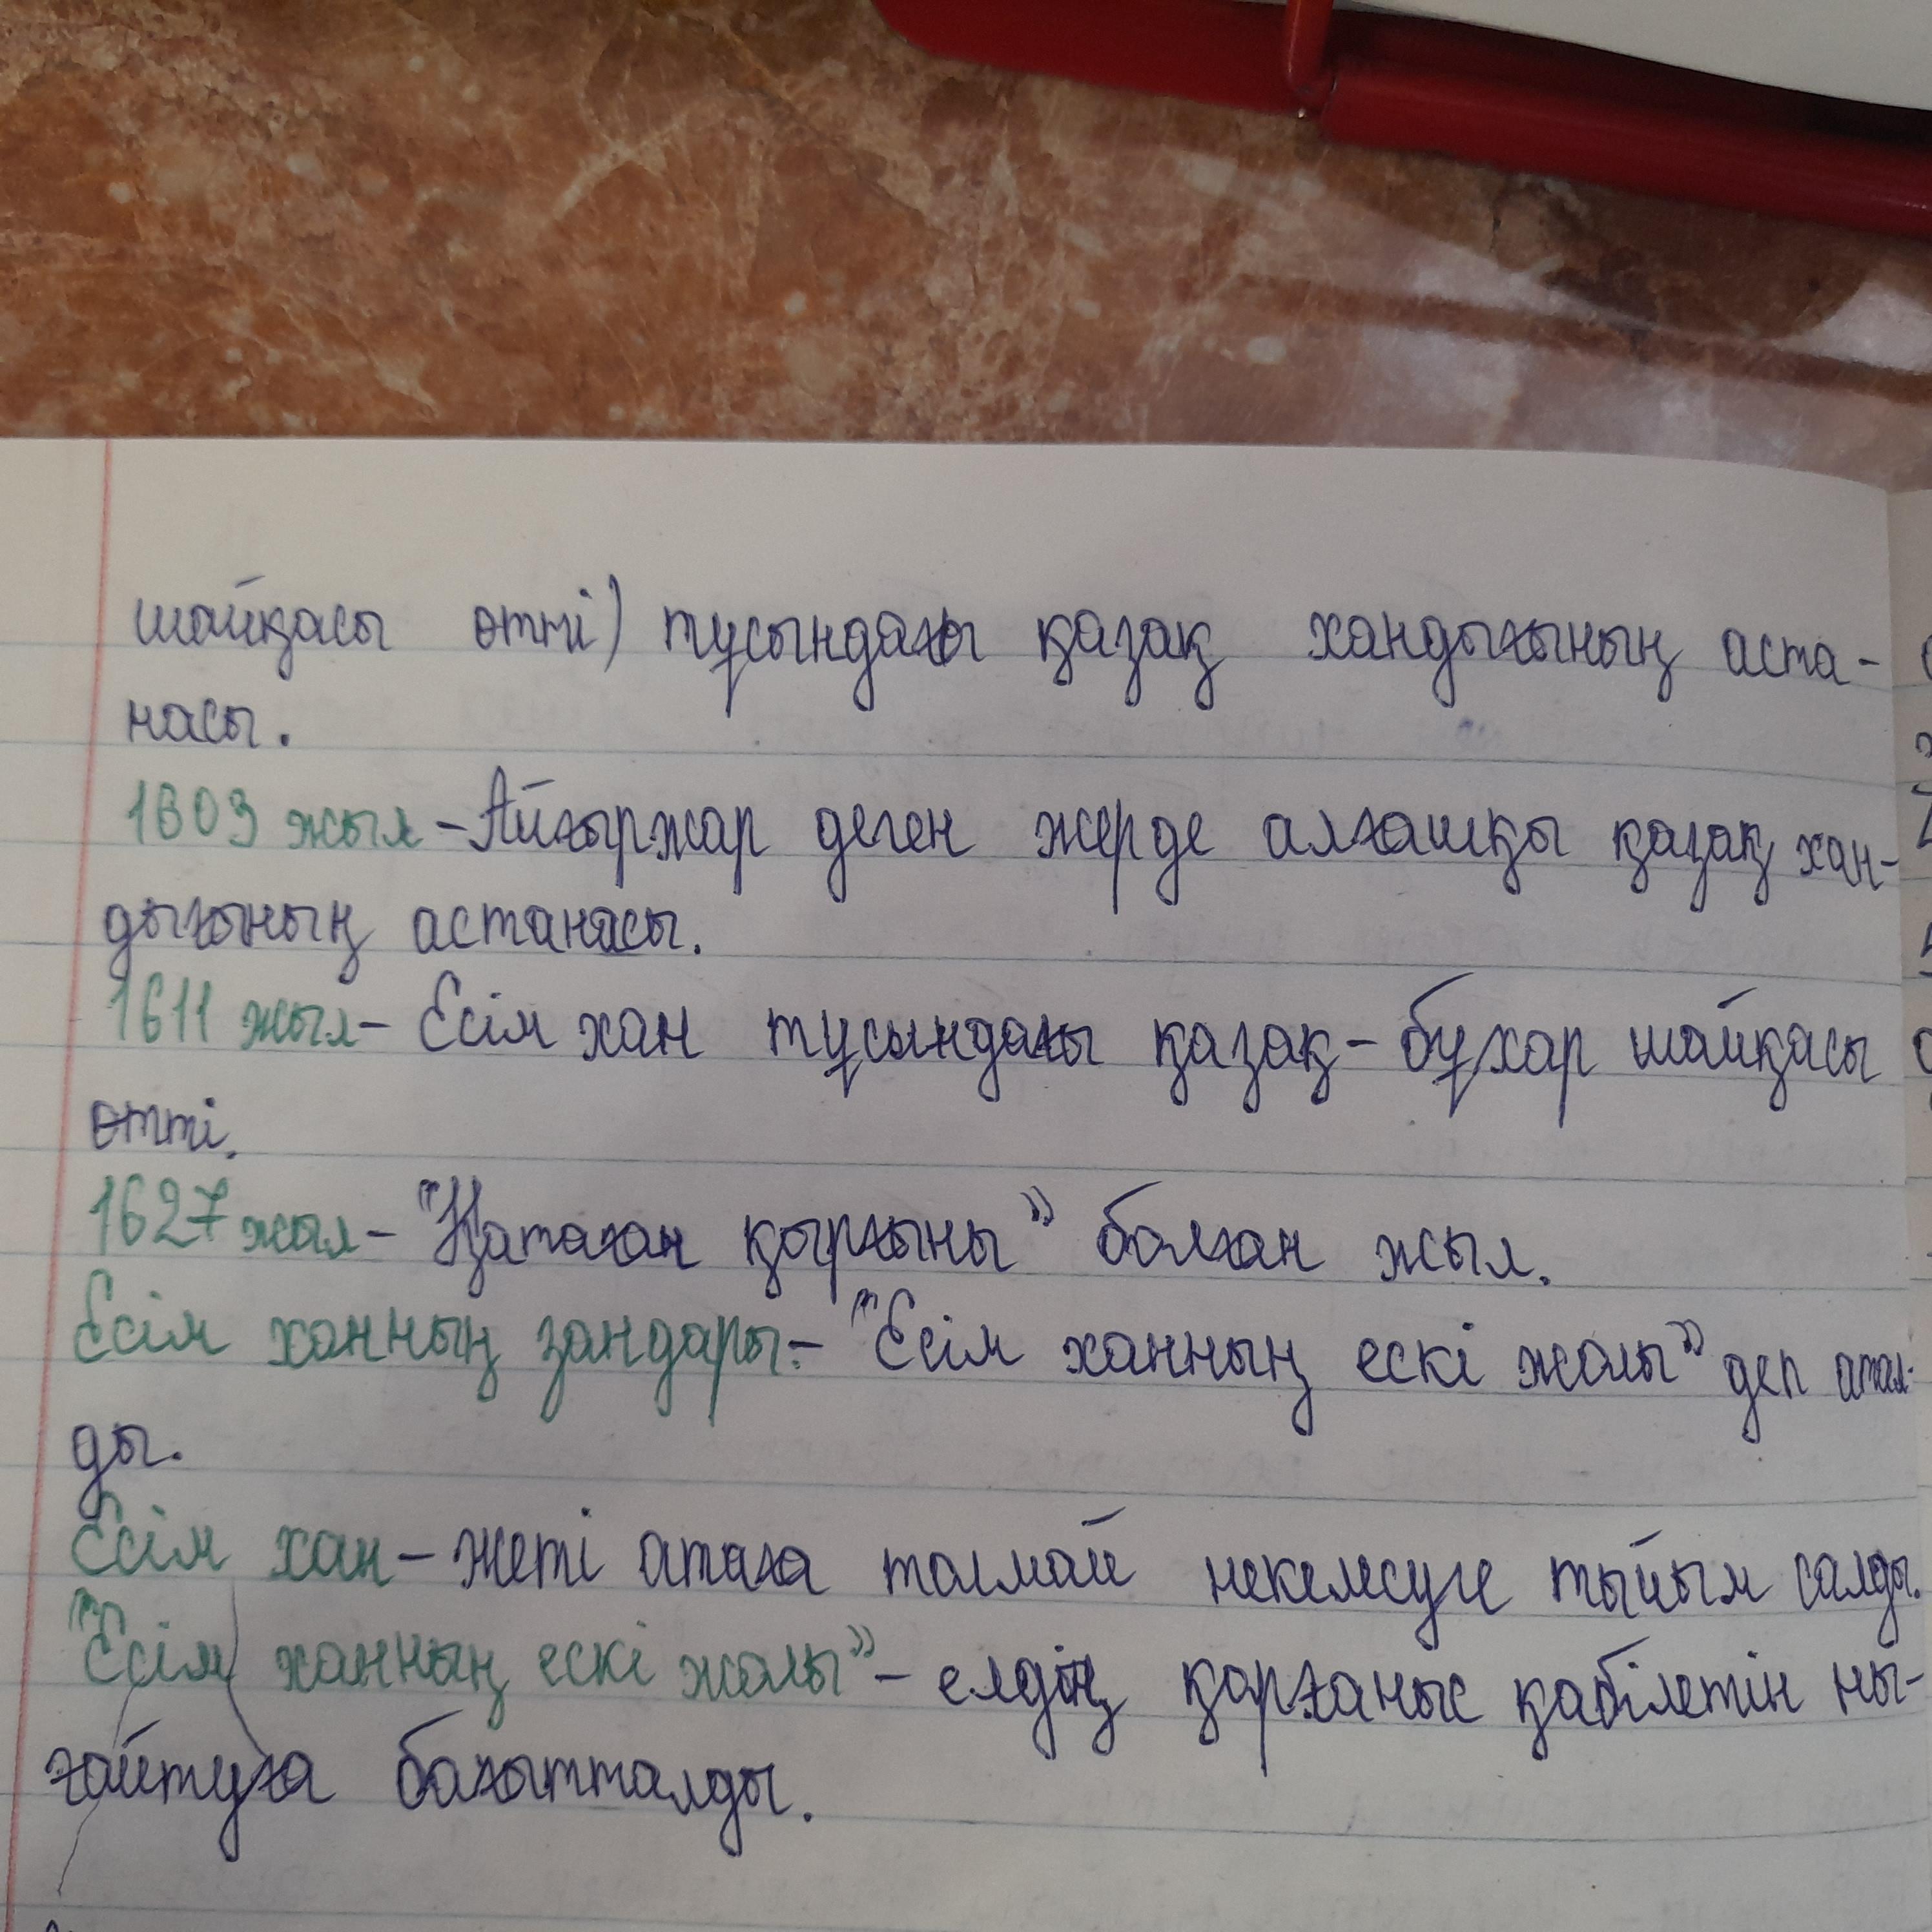 шайқасы өтті) тұсындағы қазақ хандығының аста-
насы.
1603 жыл – Айғыржар деген жерде алғашқы қазақ хан-
дығының астанасы.
1611 жыл – Есім хан тұсындағы қазақ – бұхар шайқасы
өтті.
1627 жыл – "Қатаған қырғыны" болған жыл.
Есім ханның заңдары: – "Есім ханның ескі жолы" деп атал-
ды.
Есім хан – жеті атаға толмай некелесуге тыйым салды.
"Есім ханның ескі жолы" – елдің қорғаныс қабілетін ны-
ғайтуға бағытталды.